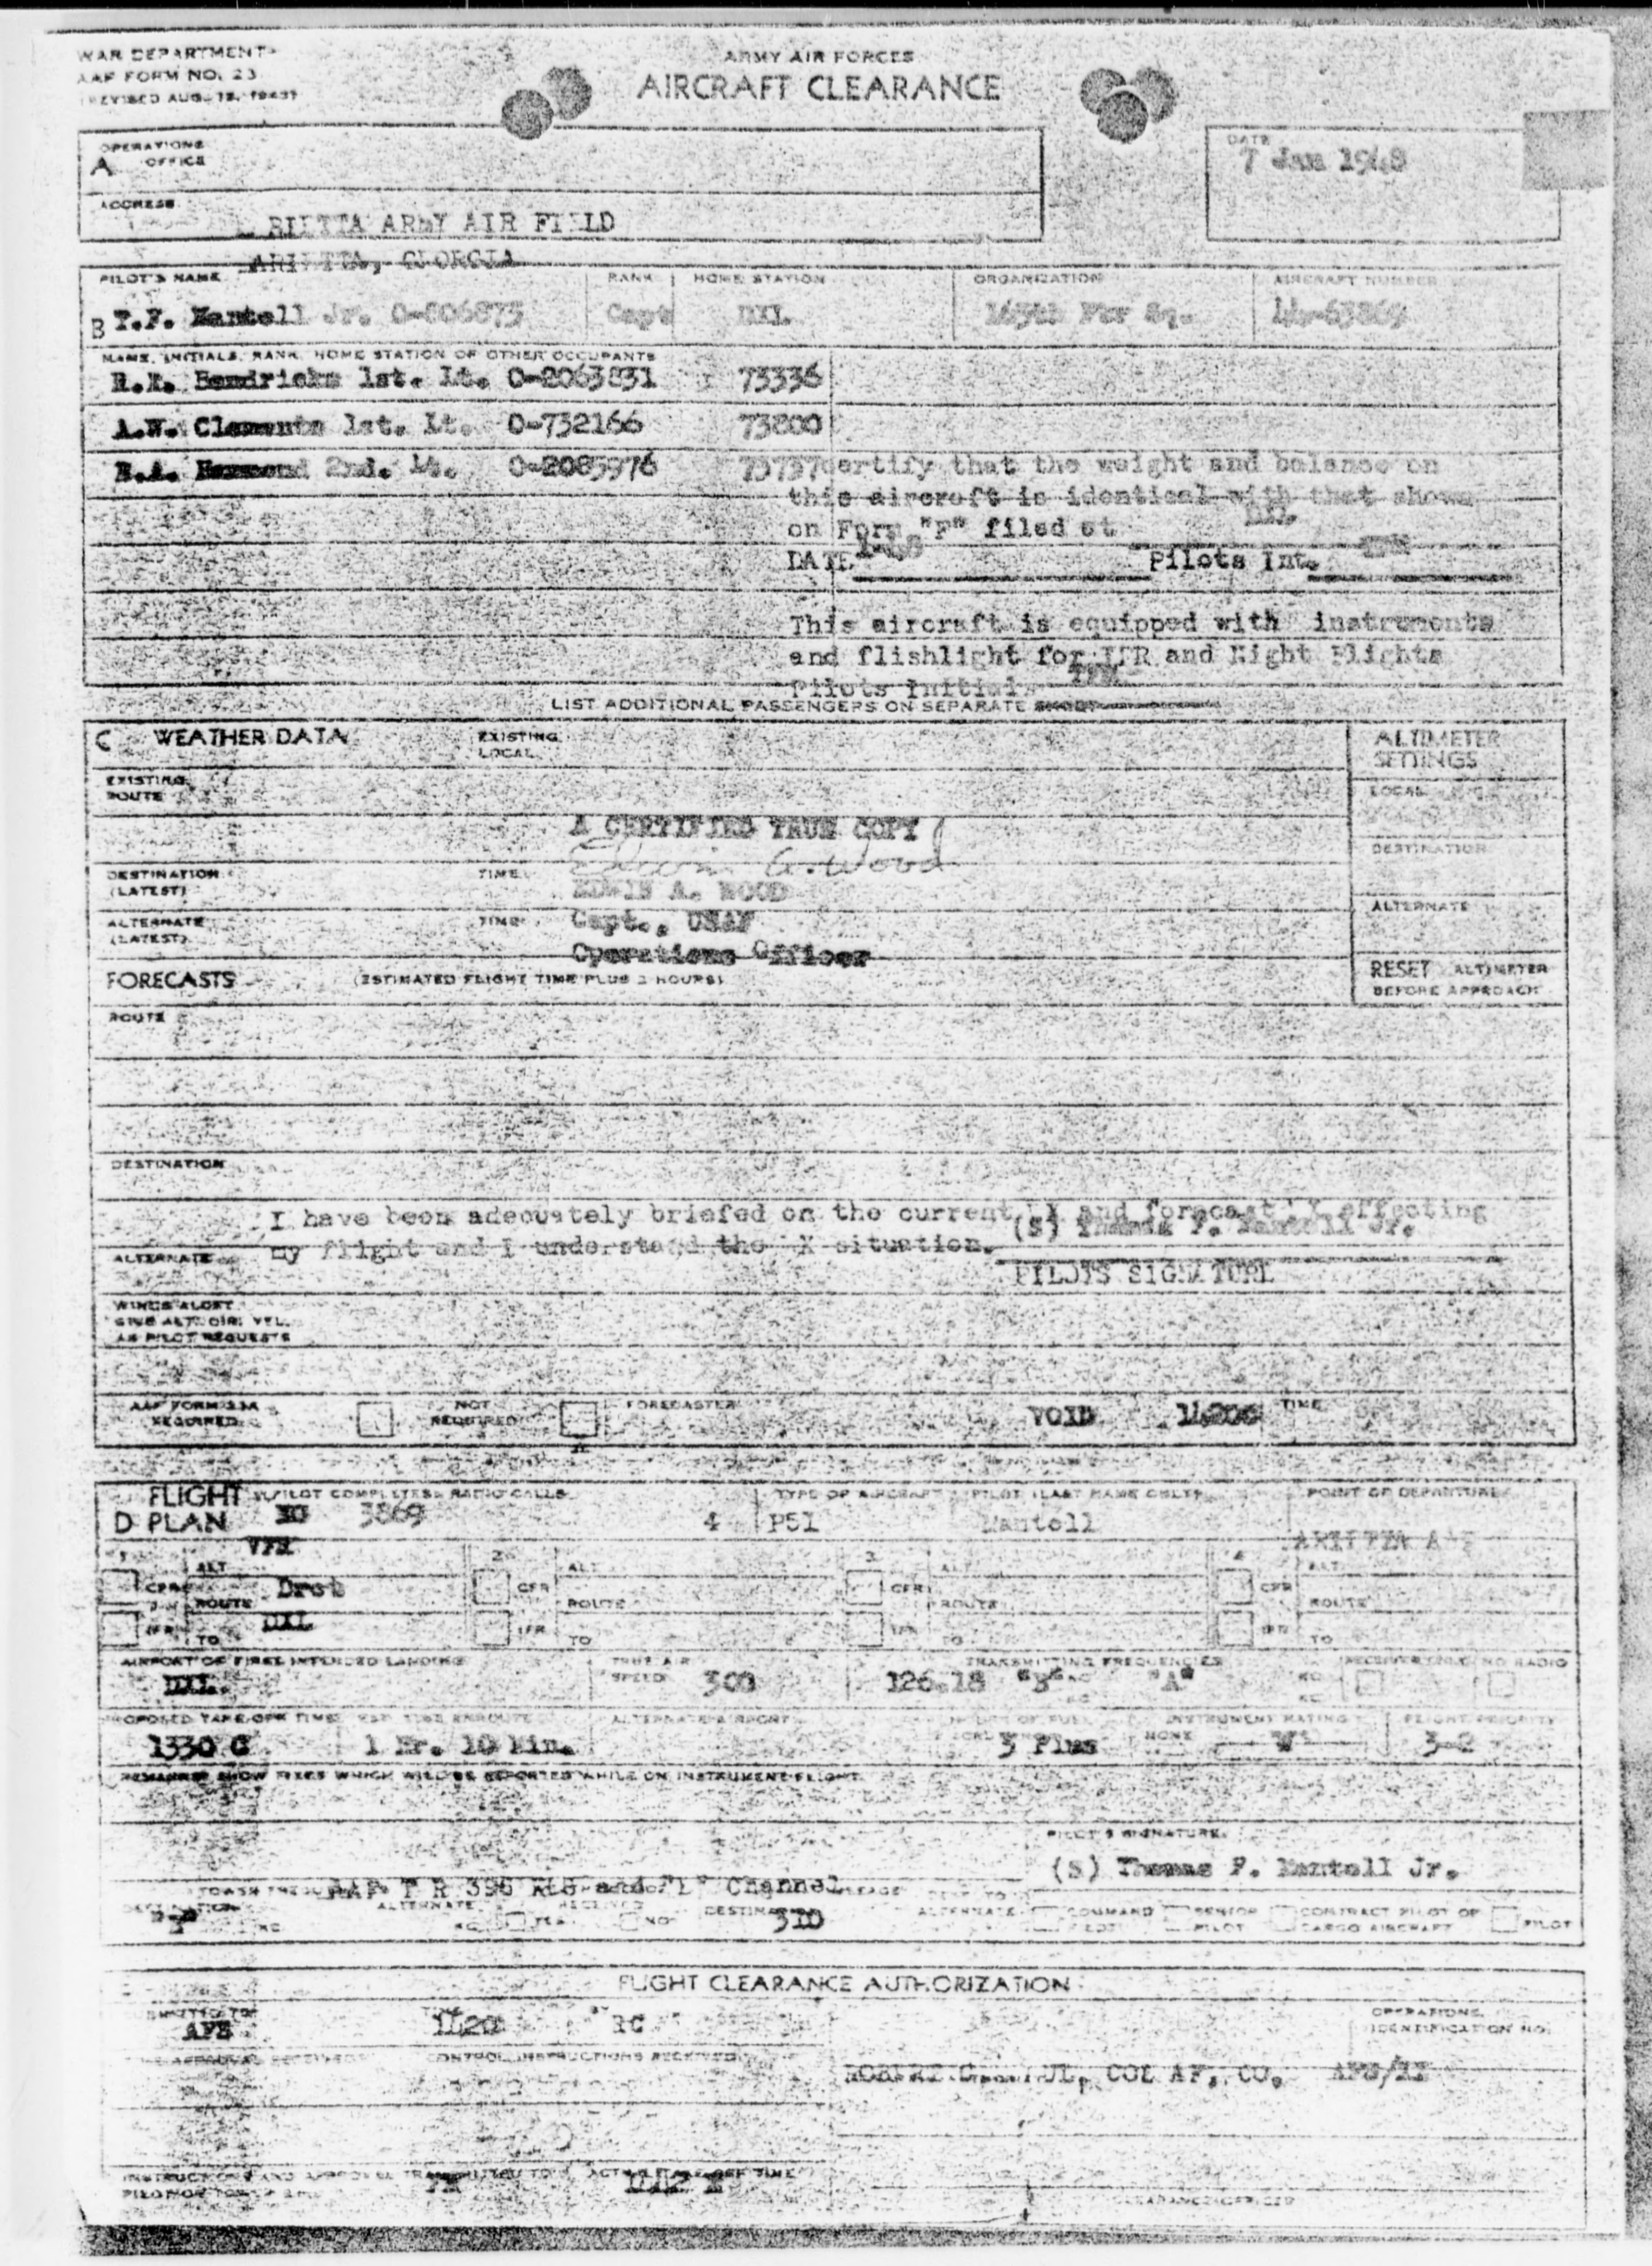 WAR DEPARTMENT
AAF FORM NO. 23
(REVISED AUG. 12, 1943)
ARMY AIR FORCES
AIRCRAFT CLEARANCE
A OPERATIONS OFFICE
DATE
7 Jan 1948
ADDRESS
RIETTA ARMY AIR FI LD
ARIETTA, GEORGIA
PILOT'S NAME RANK HOME STATION ORGANIZATION AIRCRAFT NUMBER
B T.F. Mantell Jr. 0-806873 Capt DXL 165th Ftr Sq. 44-63869
NAME, INITIALS, RANK, HOME STATION OF OTHER OCCUPANTS
R.K. Hendricks 1st. Lt. 0-2063831 73336
A.W. Clements 1st. Lt. 0-732166 73800
B.A. Hammond 2nd. Lt. 0-2085976 73737
certify that the weight and balance on
this aircraft is identical with that shown
on Form "F" filed at DXL
DATE Pilots Int. TFM
This aircraft is equipped with instruments
and flishlight for IFR and Night Flights
Pilots Initials TFM
LIST ADDITIONAL PASSENGERS ON SEPARATE SHEET
C WEATHER DATA EXISTING LOCAL ALTIMETER SETTINGS
EXISTING ROUTE LOCAL
A CERTIFIED TRUE COPY
Edwin A. Wood
DESTINATION
DESTINATION (LATEST) TIME
EDWIN A. WOOD
ALTERNATE (LATEST) TIME Capt., USAF ALTERNATE
Operations Officer
FORECASTS (ESTIMATED FLIGHT TIME PLUS 2 HOURS) RESET ALTIMETER BEFORE APPROACH
ROUTE
DESTINATION
I have been adequately briefed on the current and forecast effecting
(S) Thomas F. Mantell Jr.
ALTERNATE my flight and I understand the situation.
PILOTS SIGNATURE
WINDS ALOFT
GIVE ALT. DIR. VEL.
AS PILOT REQUESTS
AAF FORM 23A REQUIRED NOT REQUIRED FORECASTER VOID TIME
D FLIGHT PLAN PILOT COMPLETES RADIO CALLS TYPE OF AIRCRAFT PILOT (LAST NAME ONLY) POINT OF DEPARTURE
3869 4 P51 Mantell ARIETTA AAF
1 VFR ALT 2 ALT 3 ALT 4 ALT
CFR ROUTE Drct CFR ROUTE CFR ROUTE CFR ROUTE
IFR TO DXL IFR TO IFR TO IFR TO
AIRPORT OF FIRST INTENDED LANDING TRUE AIR SPEED TRANSMITTING FREQUENCIES RECEIVER ONLY NO RADIO
DXL 300 126.18 "B" "A"
PROPOSED TAKE-OFF TIME EST. TIME ENROUTE ALTERNATE AIRPORT HOURS OF FUEL INSTRUMENT RATING FLIGHT PRIORITY
1330 C 1 Hr. 10 Min. 3 Plus NONE W 3-2
REMARKS: SHOW FIXES WHICH WILL BE REPORTED WHILE ON INSTRUMENT FLIGHT
PILOT'S SIGNATURE
(S) Thomas F. Mantell Jr.
Channel
DESTINATION ALTERNATE YES NO DESTINATION 310 ALTERNATE COMMAND PILOT SENIOR PILOT CONTRACT PILOT OF CARGO AIRCRAFT PILOT
FLIGHT CLEARANCE AUTHORIZATION
SUBMITTED TO TIME BY OPERATIONS IDENTIFICATION NO.
AFS 1420 RC
TIME APPROVAL RECEIVED CONTROL INSTRUCTIONS RECEIVED
COL AF, CO.
INSTRUCTIONS AND APPROVAL TRANSMITTED TO ACTUAL TAKE-OFF TIME
CLEARANCE OFFICER